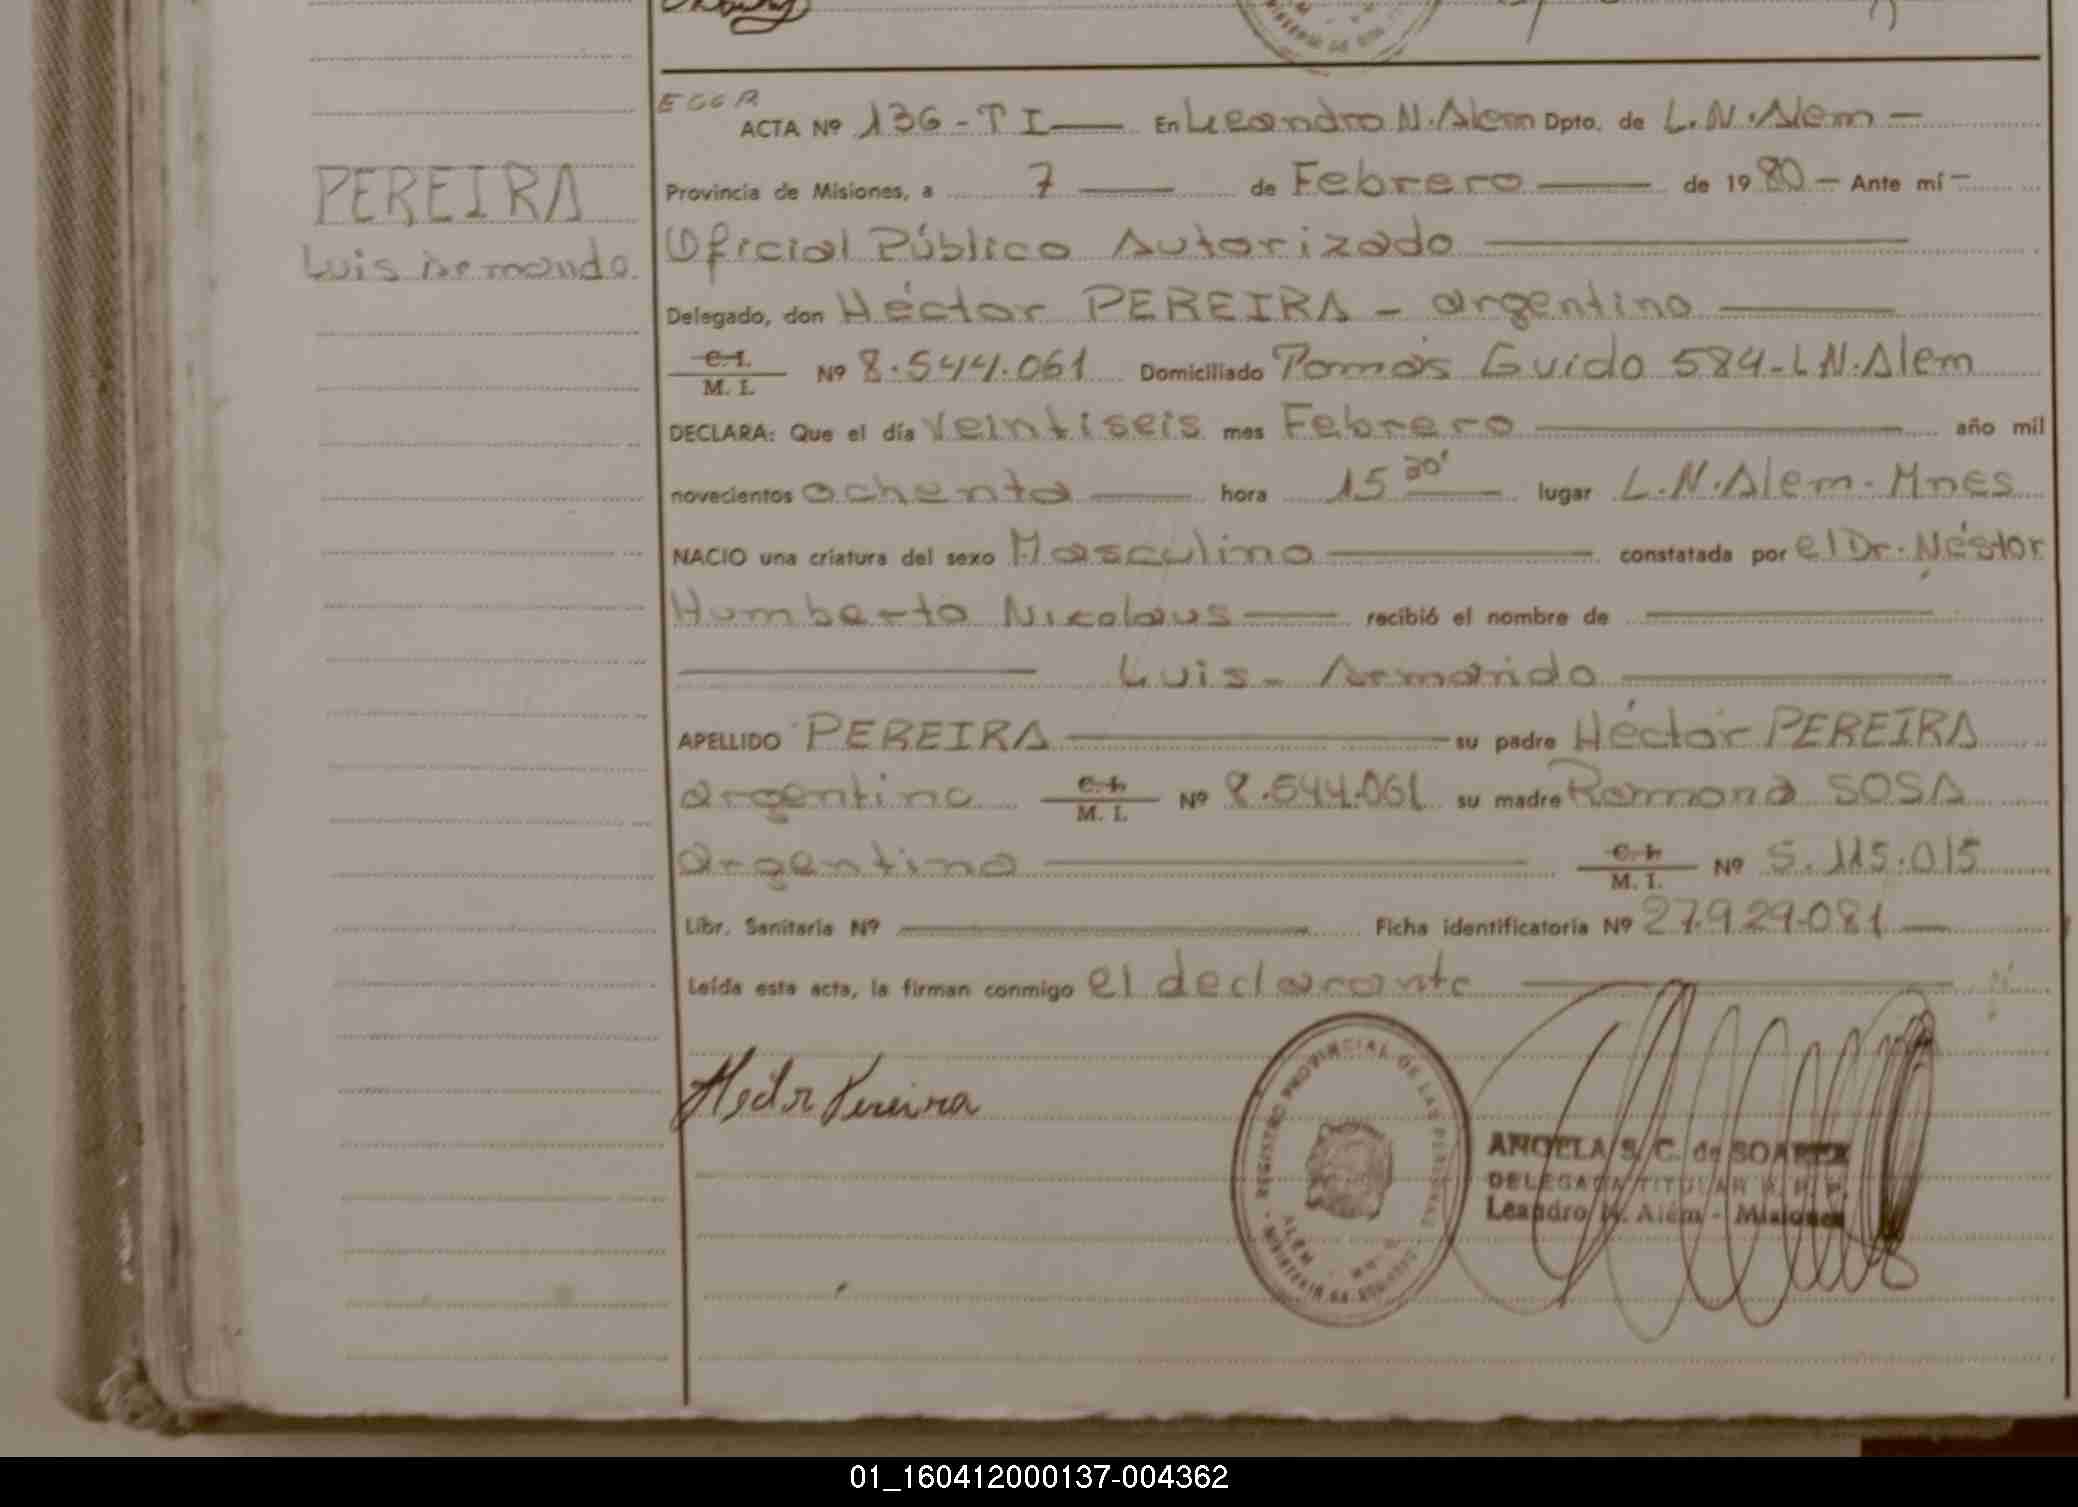 EGGR
ACTA Nº 136 - T I — En Leandro N. Alem Dpto. de L. N. Alem —
PEREIRA
Luis Armando
Provincia de Misiones, a 7 — de Febrero — de 1980 — Ante mí —
Oficial Público Autorizado —
Delegado, don Héctor PEREIRA - argentino —
C. I.
M. I. Nº 8.544.061 Domiciliado Tomás Guido 584 - L N. Alem
DECLARA: Que el día veintiseis mes Febrero — año mil
novecientos ochenta — hora 15 30' — lugar L. N. Alem. Mnes
NACIO una criatura del sexo Masculino — constatada por el Dr. Néstor
Humberto Nicolaus — recibió el nombre de —
— Luis - Armando —
APELLIDO PEREIRA — su padre Héctor PEREIRA
argentino C. I.
M. I. Nº 8.544.061 su madre Ramona SOSA
argentina — C. I.
M. I. Nº 5.115.015
Libr. Sanitaria Nº — Ficha identificatoria Nº 27.929.081 —
Leída esta acta, la firman conmigo el declarante —
Hector Pereira
REGISTRO PROVINCIAL DE LAS PERSONAS
ALEM
ANGELA S. C. de SOAREX
DELEGADA TITULAR R. P. P.
Leandro N. Alem - Misiones
01_160412000137-004362